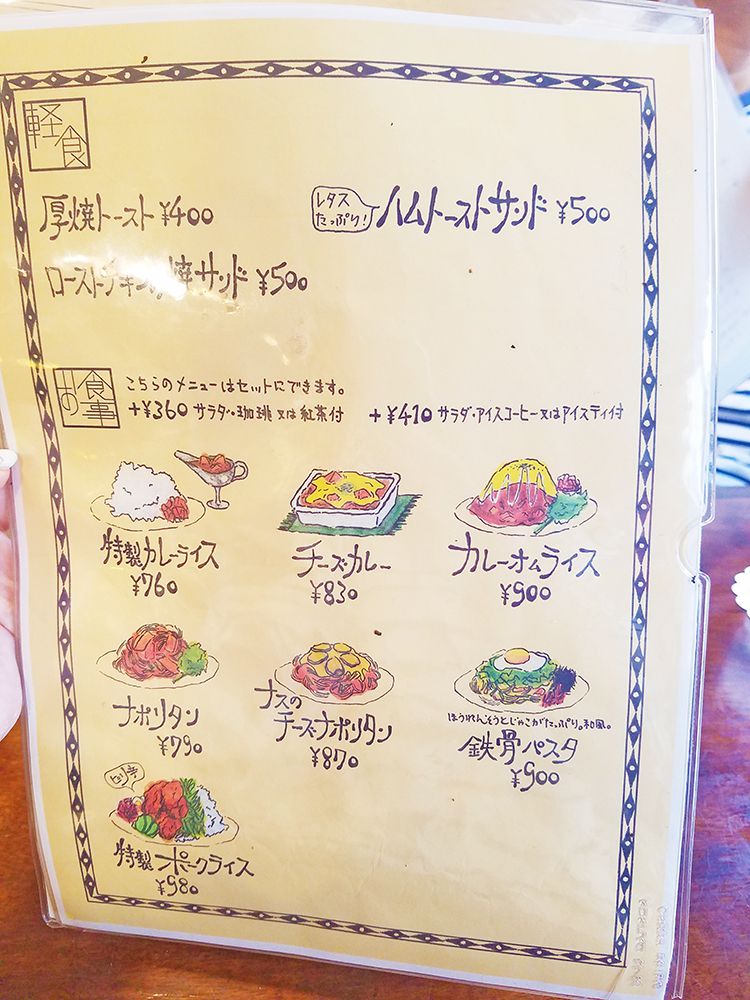 軽食
厚焼トースト ¥400
レタス
たっぷり!
ハムトーストサンド ¥500
ローストチキン焼サンド ¥500
お食事
こちらのメニューはセットにできます。
+¥360 サラダ・珈琲 又は 紅茶付
+¥410 サラダ・アイスコーヒー又はアイスティ付
特製カレーライス
¥760
チーズカレー
¥830
カレーオムライス
¥900
ナポリタン
¥790
ナスの
チーズナポリタン
¥870
ほうれんそうとじゃこがたっぷり。和風。
鉄骨パスタ
¥900
特製 ポークライス
¥980